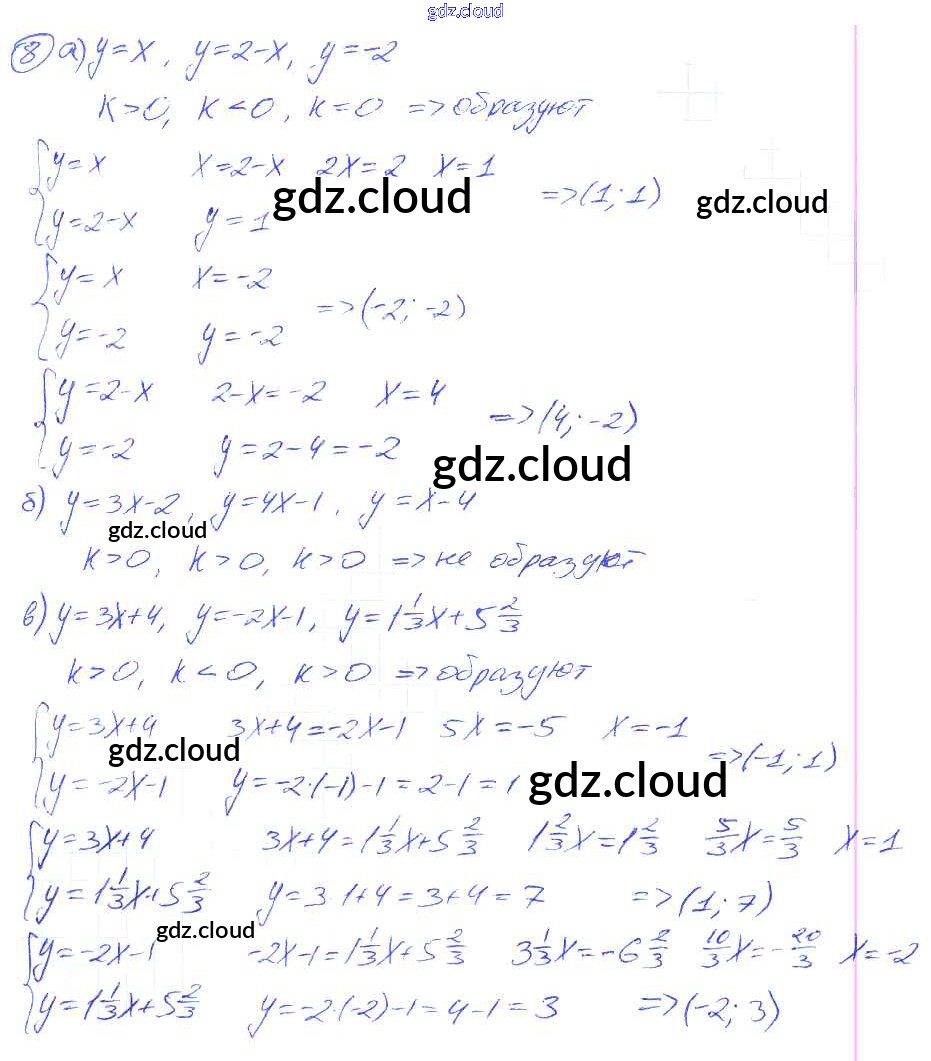 gdz.cloud
8 а) y=x, y=2-x, y=-2
k>0, k<0, k=0 => образуют
{ y=x x=2-x 2x=2 x=1 => (1; 1)
gdz.cloud gdz.cloud
{ y=2-x y=1
{ y=x x=-2 => (-2; -2)
{ y=-2 y=-2
{ y=2-x 2-x=-2 x=4 => (4; -2)
{ y=-2 y=2-4=-2
gdz.cloud
б) y=3x-2, y=4x-1, y=x-4
gdz.cloud
k>0, k>0, k>0 => не образуют
в) y=3x+4, y=-2x-1, y=1 1/3 x+5 2/3
k>0, k<0, k>0 => образуют
{ y=3x+4 3x+4=-2x-1 5x=-5 x=-1 => (-1; 1)
gdz.cloud gdz.cloud
{ y=-2x-1 y=-2·(-1)-1=2-1=1
{ y=3x+4 3x+4=1 1/3 x+5 2/3 1 2/3 x=1 2/3 5/3 x=5/3 x=1
{ y=1 1/3 x+5 2/3 y=3·1+4=3+4=7 => (1; 7)
gdz.cloud
{ y=-2x-1 -2x-1=1 1/3 x+5 2/3 3 1/3 x=-6 2/3 10/3 x=-20/3 x=-2
{ y=1 1/3 x+5 2/3 y=-2·(-2)-1=4-1=3 => (-2; 3)